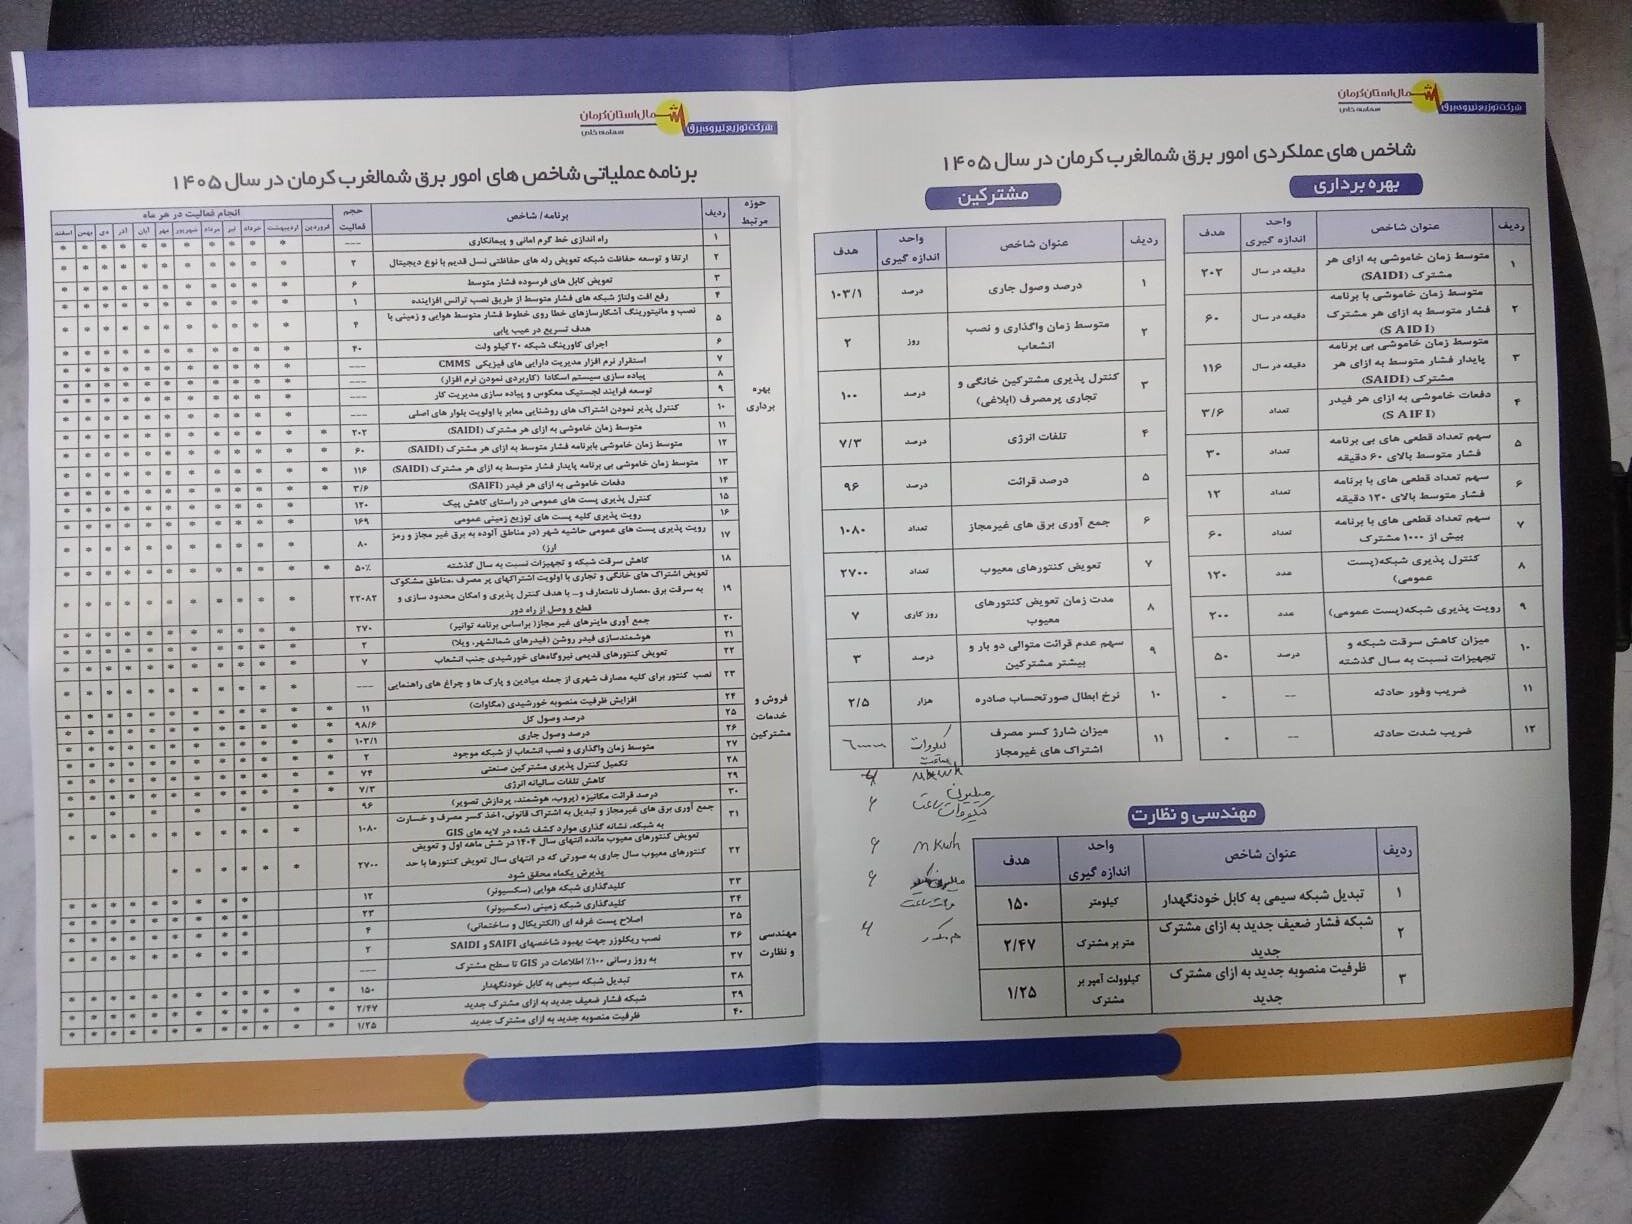 شرکت توزیع نیروی برق شمال استان کرمان
سهامی خاص
شاخص های عملکردی امور برق شمالغرب کرمان در سال ۱۴۰۵
بهره برداری
ردیف عنوان شاخص واحد اندازه گیری هدف
۱ متوسط زمان خاموشی به ازای هر مشترک (SAIDI) دقیقه در سال ۲۰۲
۲ متوسط زمان خاموشی با برنامه فشار متوسط به ازای هر مشترک (SAIDI) دقیقه در سال ۶۰
۳ متوسط زمان خاموشی بی برنامه پایدار فشار متوسط به ازای هر مشترک (SAIDI) دقیقه در سال ۱۱۶
۴ دفعات خاموشی به ازای هر فیدر (SAIFI) تعداد ۳/۶
۵ سهم تعداد قطعی های بی برنامه فشار متوسط بالای ۶۰ دقیقه تعداد ۳۰
۶ سهم تعداد قطعی های با برنامه فشار متوسط بالای ۱۲۰ دقیقه تعداد ۱۲
۷ سهم تعداد قطعی های با برنامه بیش از ۱۰۰۰ مشترک تعداد ۶۰
۸ کنترل پذیری شبکه(پست عمومی) عدد ۱۲۰
۹ رویت پذیری شبکه(پست عمومی) عدد ۲۰۰
۱۰ میزان کاهش سرقت شبکه و تجهیزات نسبت به سال گذشته درصد ۵۰
۱۱ ضریب وفور حادثه -- ۰
۱۲ ضریب شدت حادثه -- ۰
مشترکین
ردیف عنوان شاخص واحد اندازه گیری هدف
۱ درصد وصول جاری درصد ۱۰۳/۱
۲ متوسط زمان واگذاری و نصب انشعاب روز ۲
۳ کنترل پذیری مشترکین خانگی و تجاری پرمصرف (ابلاغی) درصد ۱۰۰
۴ تلفات انرژی درصد ۷/۳
۵ درصد قرائت درصد ۹۶
۶ جمع آوری برق های غیرمجاز تعداد ۱۰۸۰
۷ تعویض کنتورهای معیوب تعداد ۲۷۰۰
۸ مدت زمان تعویض کنتورهای معیوب روز کاری ۷
۹ سهم عدم قرائت متوالی دو بار و بیشتر مشترکین درصد ۳
۱۰ نرخ ابطال صورتحساب صادره هزار ۲/۵
۱۱ میزان شارژ کسر مصرف اشتراک های غیرمجاز کیلووات ساعت
MKWh ۶
میلیون کیلووات ساعت ۶
MKWh ۶
مهندسی و نظارت
ردیف عنوان شاخص واحد اندازه گیری هدف
۱ تبدیل شبکه سیمی به کابل خودنگهدار کیلومتر ۱۵۰
۲ شبکه فشار ضعیف جدید به ازای مشترک جدید متر بر مشترک ۲/۴۷
۳ ظرفیت منصوبه جدید به ازای مشترک جدید کیلوولت آمپر بر مشترک ۱/۲۵
شرکت توزیع نیروی برق شمال استان کرمان
سهامی خاص
برنامه عملیاتی شاخص های امور برق شمالغرب کرمان در سال ۱۴۰۵
حوزه مرتبط ردیف برنامه/ شاخص حجم فعالیت انجام فعالیت در هر ماه
فروردین اردیبهشت خرداد تیر مرداد شهریور مهر آبان آذر دی بهمن اسفند
بهره برداری
۱ راه اندازی خط گرم امانی و پیمانکاری ---
۲ ارتقا و توسعه حفاظت شبکه تعویض رله های حفاظتی نسل قدیم با نوع دیجیتال ۲
۳ تعویض کابل های فرسوده فشار متوسط ۶
۴ رفع افت ولتاژ شبکه های فشار متوسط از طریق نصب ترانس افزاینده ۱
۵ نصب و مانیتورینگ آشکارسازهای خطا روی خطوط فشار متوسط هوایی و زمینی با هدف تسریع در عیب یابی ۴
۶ اجرای کاورینگ شبکه ۲۰ کیلو ولت ۴۰
۷ استقرار نرم افزار مدیریت دارایی های فیزیکی CMMS ---
۸ پیاده سازی سیستم اسکادا (کاربردی نمودن نرم افزار) ---
۹ توسعه فرایند لجستیک معکوس و پیاده سازی مدیریت کار ---
۱۰ کنترل پذیر نمودن اشتراک های روشنایی معابر با اولویت بلوار های اصلی ---
۱۱ متوسط زمان خاموشی به ازای هر مشترک (SAIDI) ۲۰۲
۱۲ متوسط زمان خاموشی بابرنامه فشار متوسط به ازای هر مشترک (SAIDI) ۶۰
۱۳ متوسط زمان خاموشی بی برنامه پایدار فشار متوسط به ازای هر مشترک (SAIDI) ۱۱۶
۱۴ دفعات خاموشی به ازای هر فیدر (SAIFI) ۳/۶
۱۵ کنترل پذیری پست های عمومی در راستای کاهش پیک ۱۲۰
۱۶ رویت پذیری کلیه پست های توزیع زمینی عمومی ۱۶۹
۱۷ رویت پذیری پست های عمومی حاشیه شهر (در مناطق آلوده به برق غیر مجاز و رمز ارز) ۸۰
۱۸ کاهش سرقت شبکه و تجهیزات نسبت به سال گذشته ۵۰٪
فروش و خدمات مشترکین
۱۹ تعویض اشتراک های خانگی و تجاری با اولویت اشتراکهای پر مصرف ،مناطق مشکوک به سرقت برق ،مصارف نامتعارف و... با هدف کنترل پذیری و امکان محدود سازی و قطع و وصل از راه دور ۲۲۰۸۲
۲۰ جمع آوری ماینرهای غیر مجاز( براساس برنامه توانیر) ۲۷۰
۲۱ هوشمندسازی فیدر روشن (فیدرهای شمالشهر، ویلا) ۲
۲۲ تعویض کنتورهای قدیمی نیروگاههای خورشیدی جنب انشعاب ۷
۲۳ نصب کنتور برای کلیه مصارف شهری از جمله میادین و پارک ها و چراغ های راهنمایی ---
۲۴ افزایش ظرفیت منصوبه خورشیدی (مگاوات) ۱۱
۲۵ درصد وصول کل ۹۸/۶
۲۶ درصد وصول جاری ۱۰۳/۱
۲۷ متوسط زمان واگذاری و نصب انشعاب از شبکه موجود ۲
۲۸ تکمیل کنترل پذیری مشترکین صنعتی ۷۴
۲۹ کاهش تلفات سالیانه انرژی ۷/۳
۳۰ درصد قرائت مکانیزه (پروب، هوشمند، پردازش تصویر) ۹۶
۳۱ جمع آوری برق های غیرمجاز و تبدیل به اشتراک قانونی، اخذ کسر مصرف و خسارت به شبکه، نشانه گذاری موارد کشف شده در لایه های GIS ۱۰۸۰
۳۲ تعویض کنتورهای معیوب مانده انتهای سال ۱۴۰۴ در شش ماهه اول و تعویض کنتورهای معیوب سال جاری به صورتی که در انتهای سال تعویض کنتورها با حد پذیرش یکماه محقق شود ۲۷۰۰
مهندسی و نظارت
۳۳ کلیدگذاری شبکه هوایی (سکسیونر) ۱۲
۳۴ کلیدگذاری شبکه زمینی (سکسیونر) ۲۳
۳۵ اصلاح پست غرفه ای (الکتریکال و ساختمانی) ۴
۳۶ نصب ریکلوزر جهت بهبود شاخصهای SAIFI و SAIDI ۲
۳۷ به روز رسانی ۱۰۰٪ اطلاعات در GIS تا سطح مشترک ---
۳۸ تبدیل شبکه سیمی به کابل خودنگهدار ۱۵۰
۳۹ شبکه فشار ضعیف جدید به ازای مشترک جدید ۲/۴۷
۴۰ ظرفیت منصوبه جدید به ازای مشترک جدید ۱/۲۵